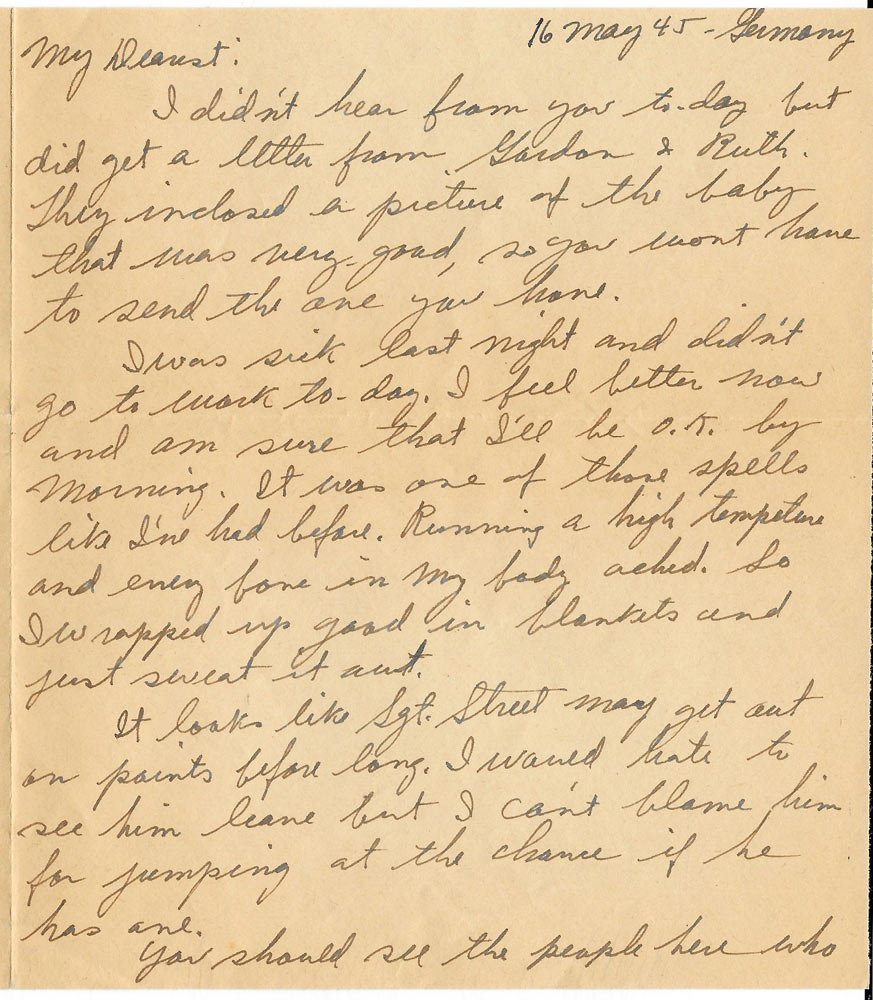 16 May 45 - Germany
My Dearest:
I didn't hear from you to-day but
did get a letter from Gordon & Ruth.
They inclosed a picture of the baby
that was very good, so you wont have
to send the one you have.
I was sick last night and didn't
go to work to-day. I feel better now
and am sure that I'll be O.K. by
Morning. It was one of those spells
like I've had before. Running a high tempeture
and every bone in my body ached. So
I wrapped up good in blankets and
just sweat it out.
It looks like Sgt. Street may get out
on points before long. I would hate to
see him leave but I can't blame him
for jumping at the chance if he
has one.
You should see the people here who